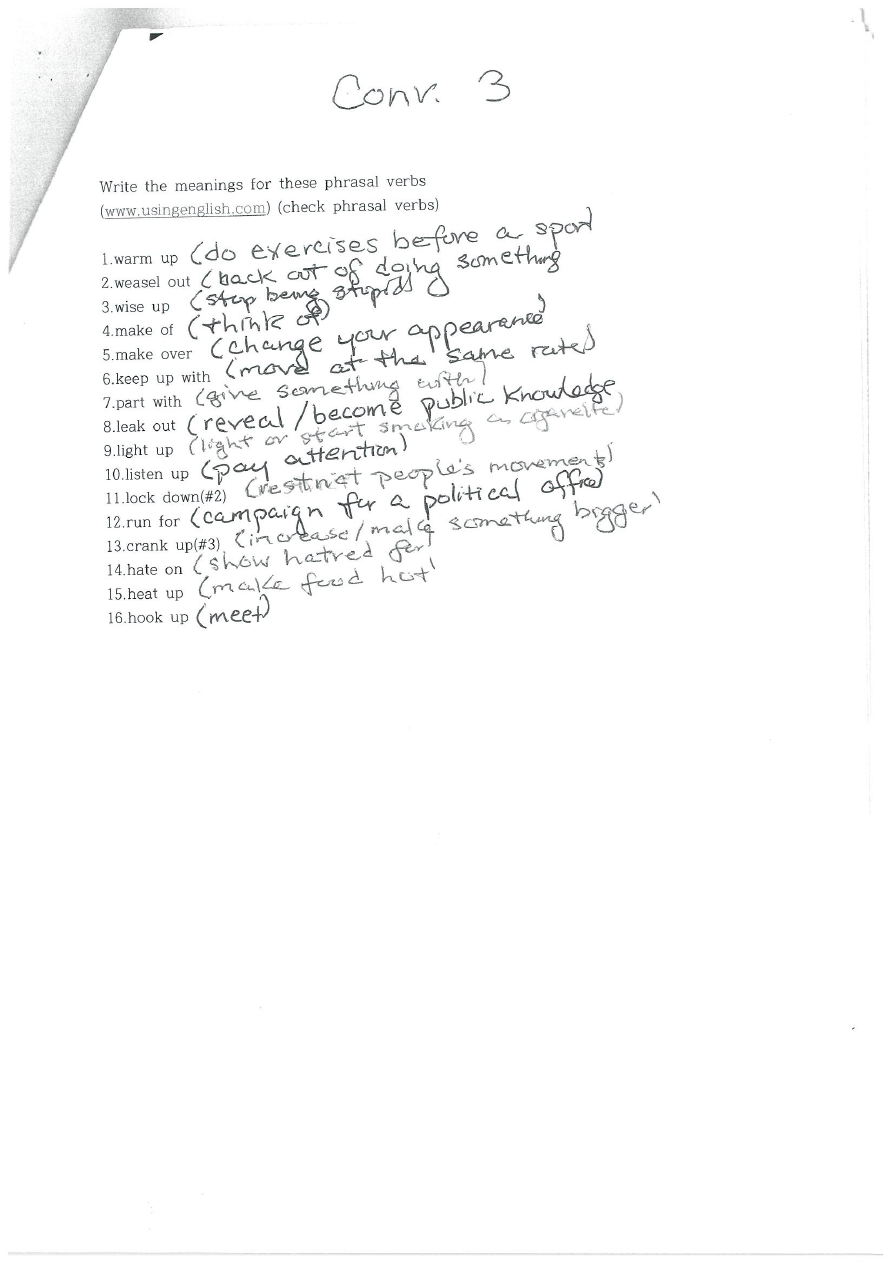 Conv. 3
Write the meanings for these phrasal verbs
(www.usingenglish.com) (check phrasal verbs)
1.warm up (do exercises before a sport
2.weasel out (back out of doing something
3.wise up (stop being stupid)
4.make of (think of)
5.make over (change your appearance)
6.keep up with (move at the same rate)
7.part with (give something with)
8.leak out (reveal/become public knowledge
9.light up (light or start smoking a cigarette)
10.listen up (pay attention)
11.lock down(#2) (restrict people's movement)
12.run for (campaign for a political office)
13.crank up(#3) (increase/make something bigger)
14.hate on (show hatred for)
15.heat up (make food hot)
16.hook up (meet)